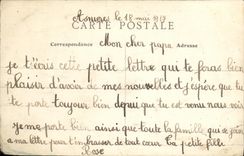 Asnières le 18 mai 1917
CARTE POSTALE
Correspondence Mon cher papa Adresse
je t'écris cette petite lettre qui te feras bien
plaisir d'avoir de mes nouvelles et j'espère que tu
te porte toujour bien depuis que tu est venu nous voir
Je me porte bien ainsi que toute la famille qui se joint
a ma lettre pour t'embrasser de tout cœur Ta petite fille
Rose